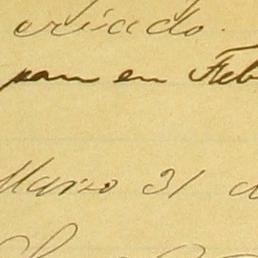 criado.
pan en Feb
Marzo 31 d